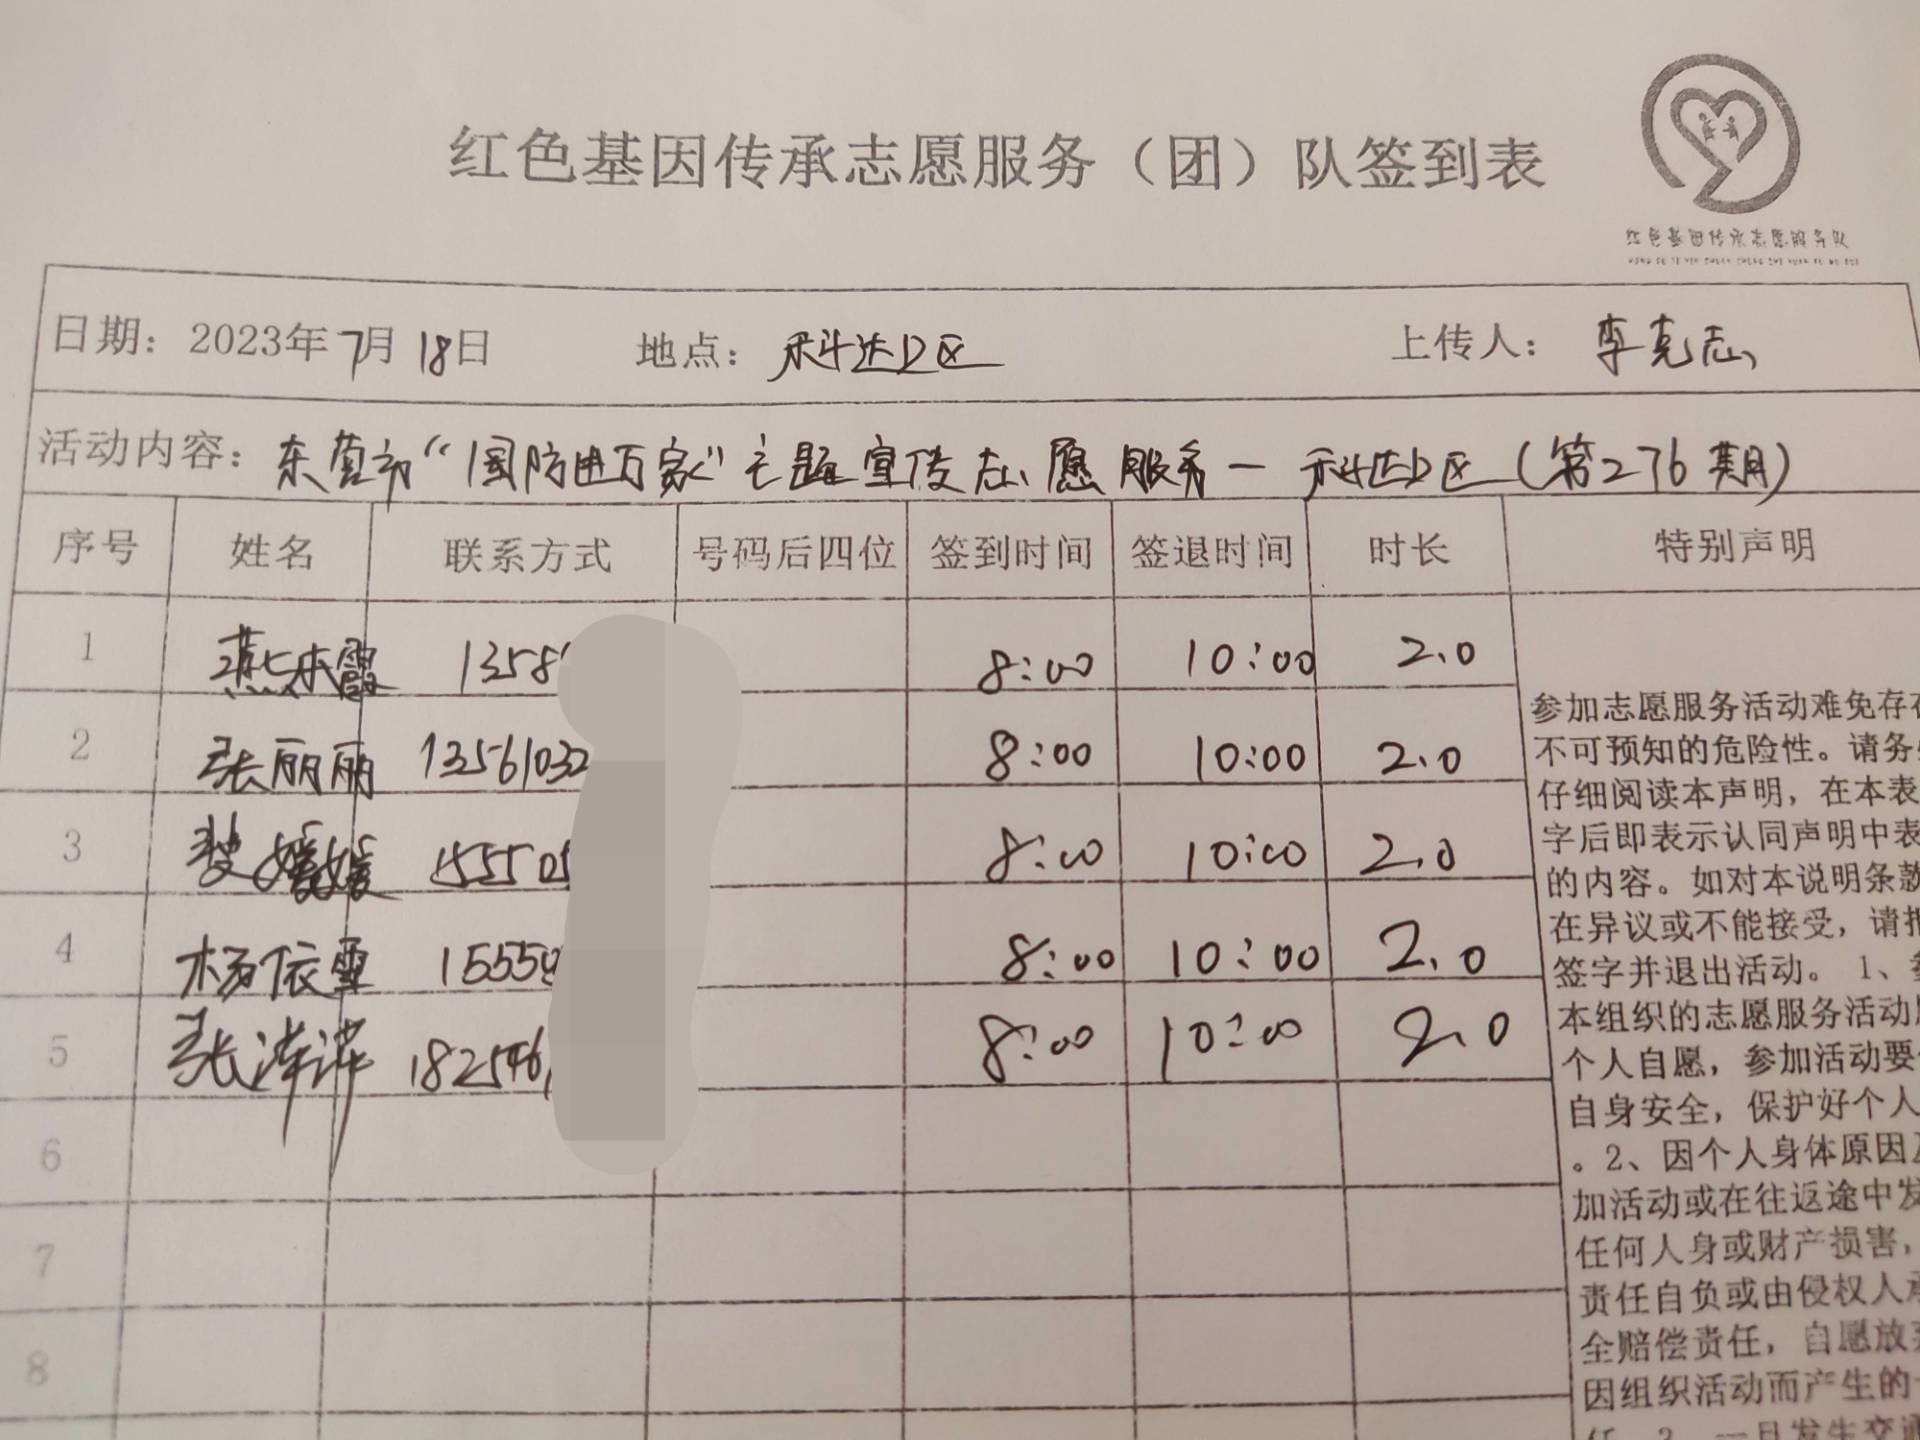 红色基因传承志愿服务（团）队签到表
红色基因传承志愿服务队
日期：2023年7月18日 地点：科达D区 上传人：李克志
活动内容：东营市“国防进万家”主题宣传志愿服务—科达D区（第276期）
序号 姓名 联系方式 号码后四位 签到时间 签退时间 时长 特别声明
1 燕东霞 1358 8:00 10:00 2.0
2 张丽丽 13561032 8:00 10:00 2.0
3 媛媛 155505 8:00 10:00 2.0
4 杨依雪 15550 8:00 10:00 2.0
5 张萍萍 182546 8:00 10:00 2.0
6
7
8
参加志愿服务活动难免存在
不可预知的危险性。请务必
仔细阅读本声明，在本表
字后即表示认同声明中表
的内容。如对本说明条款
在异议或不能接受，请拒
签字并退出活动。1、参
本组织的志愿服务活动
个人自愿，参加活动要
自身安全，保护好个人
。2、因个人身体原因及
加活动或在往返途中发
任何人身或财产损害，
责任自负或由侵权人承
全赔偿责任，自愿放弃
因组织活动而产生的
任。3、一旦发生交通